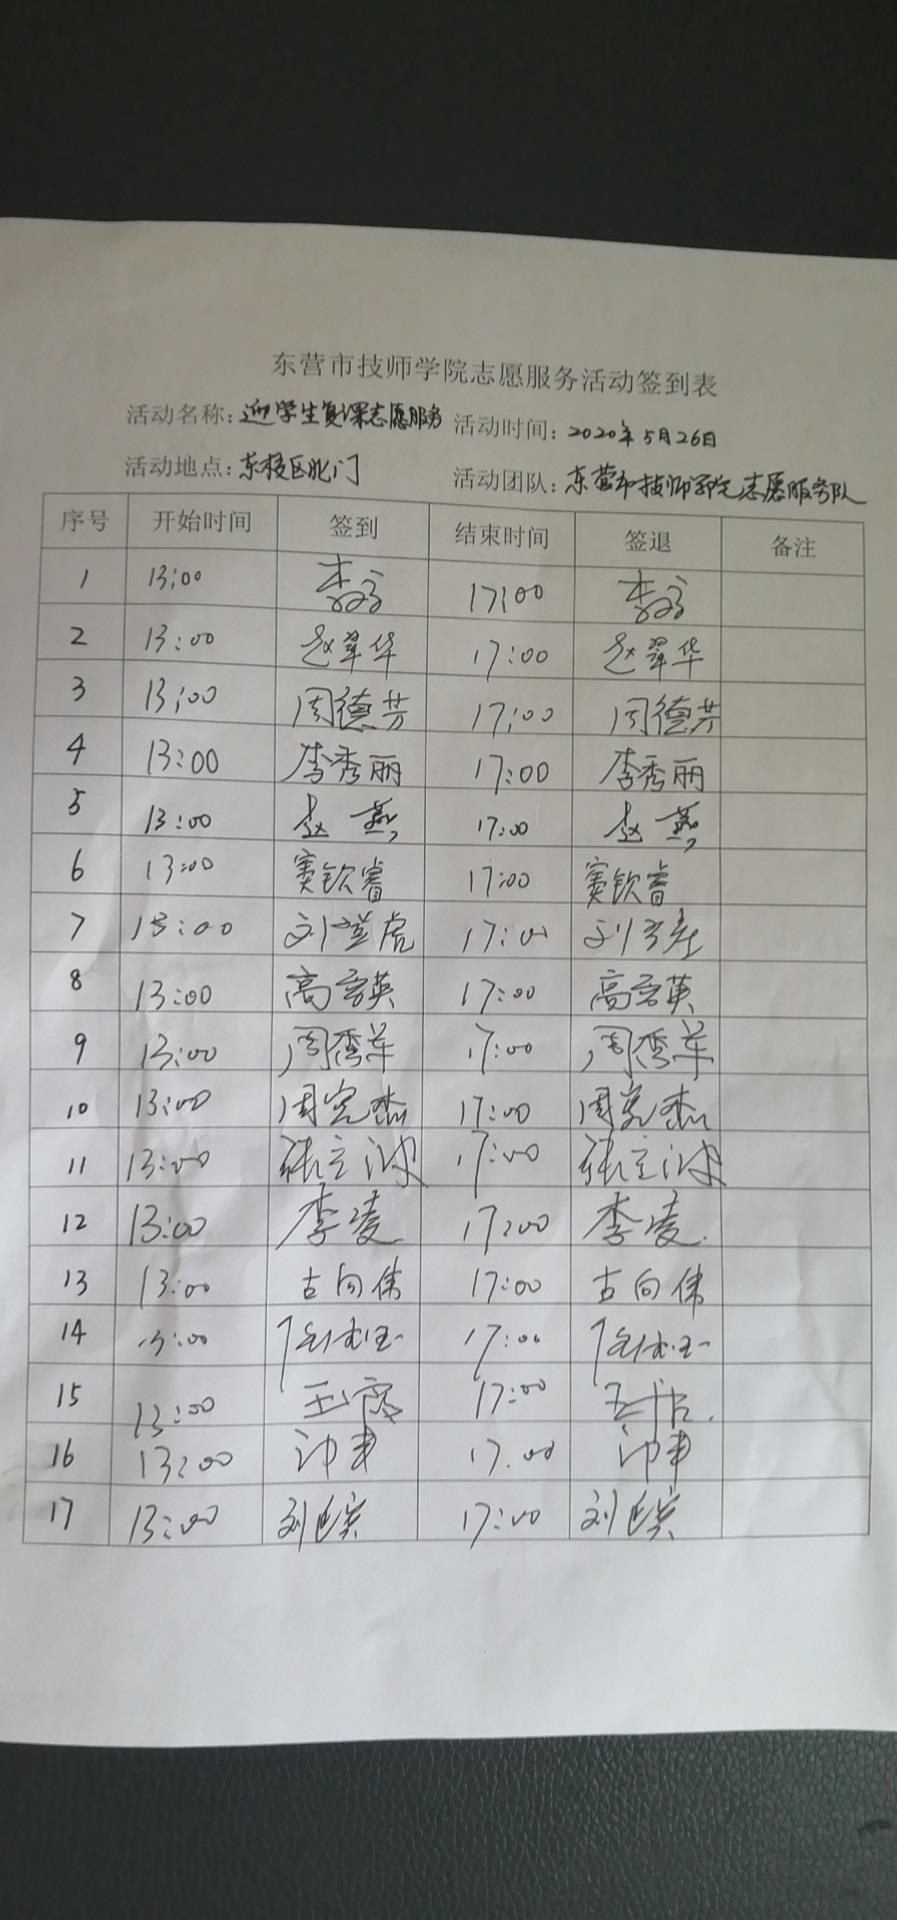 东营市技师学院志愿服务活动签到表
活动名称：迎学生复课志愿服务 活动时间：2020年5月26日
活动地点：东校区北门 活动团队：东营市技师学院志愿服务队
序号 开始时间 签到 结束时间 签退 备注
1 13:00 17:00
2 13:00 赵翠华 17:00 赵翠华
3 13:00 周德芳 17:00 周德芳
4 13:00 李秀丽 17:00 李秀丽
5 13:00 赵燕 17:00 赵燕
6 13:00 窦钦睿 17:00 窦钦睿
7 13:00 17:00
8 13:00 17:00
9 13:00 周秀军 17:00 周秀军
10 13:00 17:00
11 13:00 张立波 17:00 张立波
12 13:00 李凌 17:00 李凌
13 13:00 古向伟 17:00 古向伟
14 13:00 17:00
15 13:00 17:00
16 13:00 17:00
17 13:00 17:00